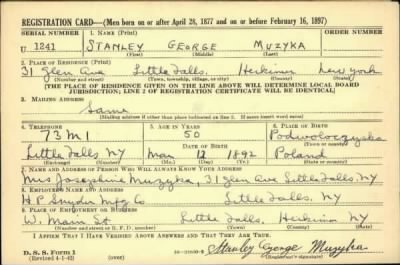 REGISTRATION CARD—(Men born on or after April 28, 1877 and on or before February 16, 1897)
SERIAL NUMBER 1. NAME (Print)
U 1241 STANLEY GEORGE MUZYKA
(First) (Middle) (Last)
2. PLACE OF RESIDENCE (Print)
31 Glen Ave Little Falls. Herkimer New York
(Number and street) (Town, township, village, or city) (County) (State)
[THE PLACE OF RESIDENCE GIVEN ON THE LINE ABOVE WILL DETERMINE LOCAL BOARD
JURISDICTION; LINE 2 OF REGISTRATION CERTIFICATE WILL BE IDENTICAL]
3. MAILING ADDRESS
Same
[Mailing address if other than place indicated on line 2. If same insert word same]
4. TELEPHONE 5. AGE IN YEARS 6. PLACE OF BIRTH
73M1 50 Podwoloczyska
DATE OF BIRTH (Town or county)
Little Falls NY Mar 12 1892 Poland
(Exchange) (Number) (Mo.) (Day) (Yr.) (State or country)
7. NAME AND ADDRESS OF PERSON WHO WILL ALWAYS KNOW YOUR ADDRESS
Mrs Josephine Muzyka, 31 Glen Ave Little Falls. NY
8. EMPLOYER'S NAME AND ADDRESS
H P Snyder Mfg Co Little Falls. NY
9. PLACE OF EMPLOYMENT OR BUSINESS
W. Main St Little Falls. Herkimer NY
(Number and street or R. F. D. number) (Town) (County) (State)
I AFFIRM THAT I HAVE VERIFIED ABOVE ANSWERS AND THAT THEY ARE TRUE.
D. S. S. Form 1
(Revised 4-1-42) (over) Stanley George Muzyka
(Registrant's signature)